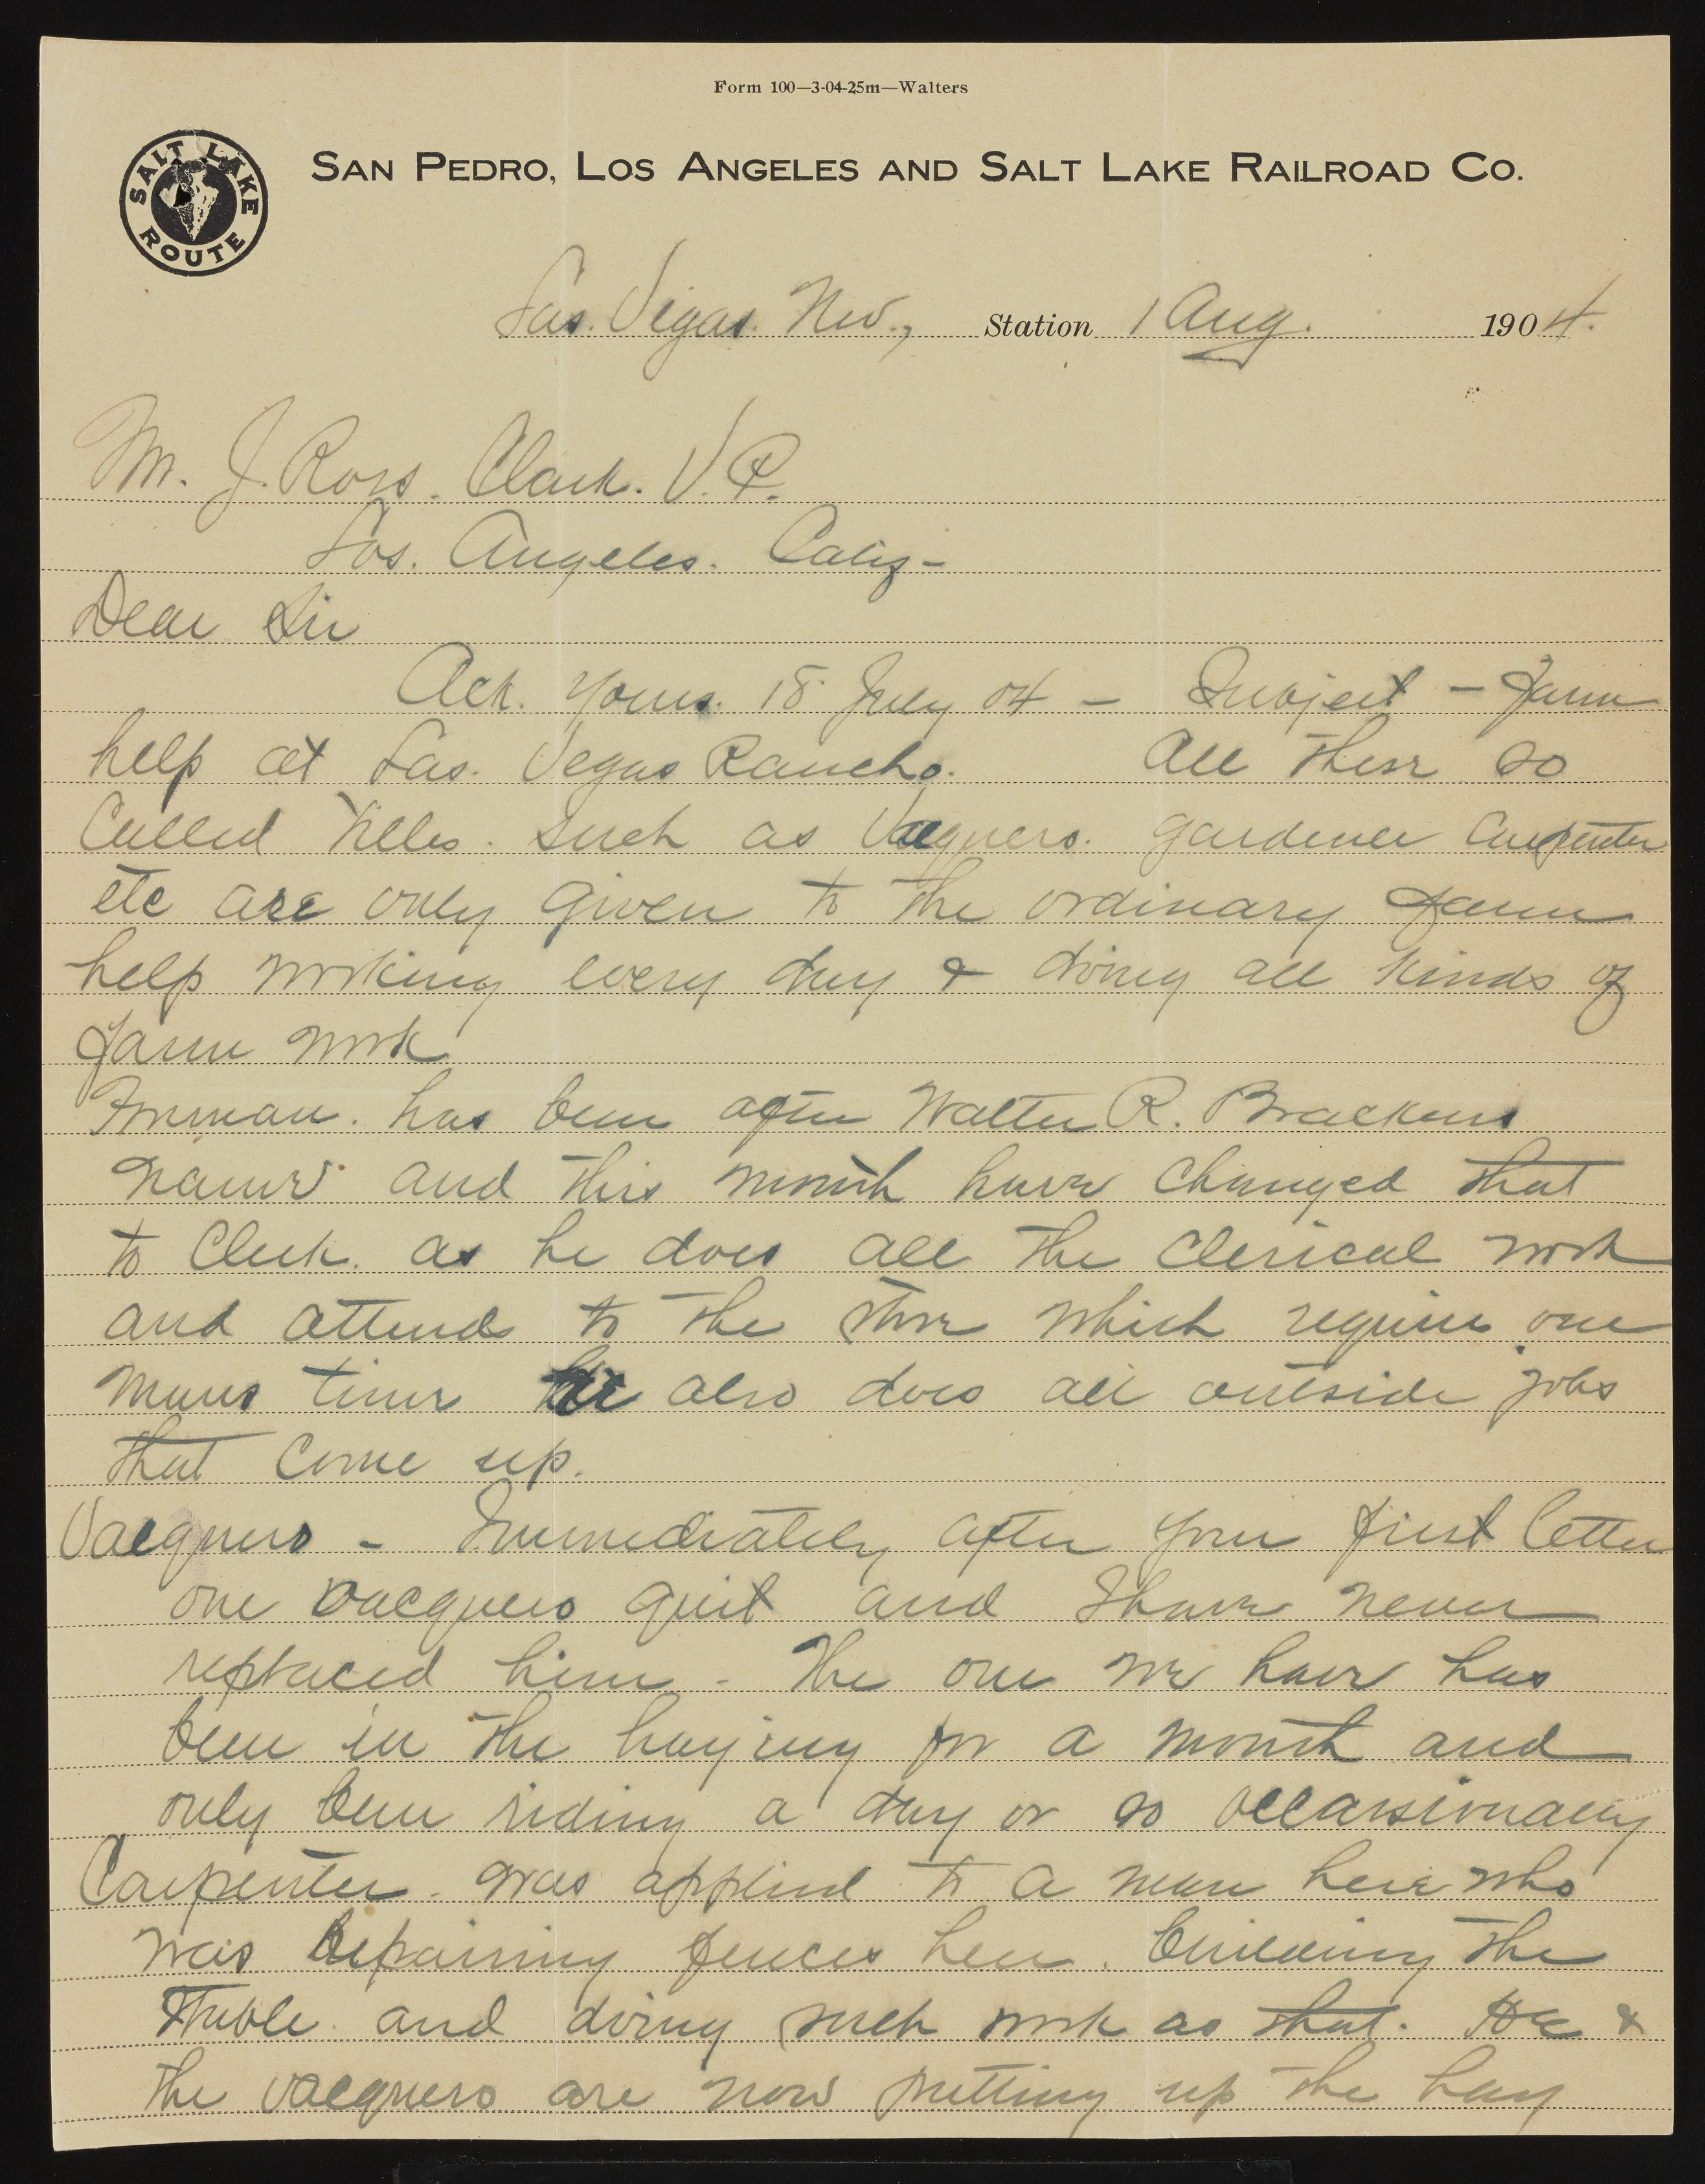 Form 100—3-04-25m—Walters
SALT LAKE ROUTE
SAN PEDRO, LOS ANGELES AND SALT LAKE RAILROAD CO.
Las. Vegas. Nev., Station 1 Aug. 1904.
Mr. J. Ross. Clark. V.P.
Los. Angeles. Calif-
Dear Sir
Ack. Yours. 18 July 04 — Subject — Farm
help at Las. Vegas Rancho. All these so
Called titles. such as Vacquero. gardener Carpenter
etc are only given to the ordinary farm
help working every day & doing all kinds of
farm work
Foreman. has been after Walter R. Brackens
name and this month have changed that
to Clerk. as he does all the clerical work
and attends to the store which requires one
mans time He also does all outside jobs
that come up.
Vacquero - Immediately after your first letter
one vacquero quit and I have never
replaced him - The one we have has
been in the haying for a month and
only been riding a day or so occassionally
Carpenter. was applied to a man here who
was repairing fences here. building the
stable and doing such work as that. He &
the vacquero are now putting up the hay